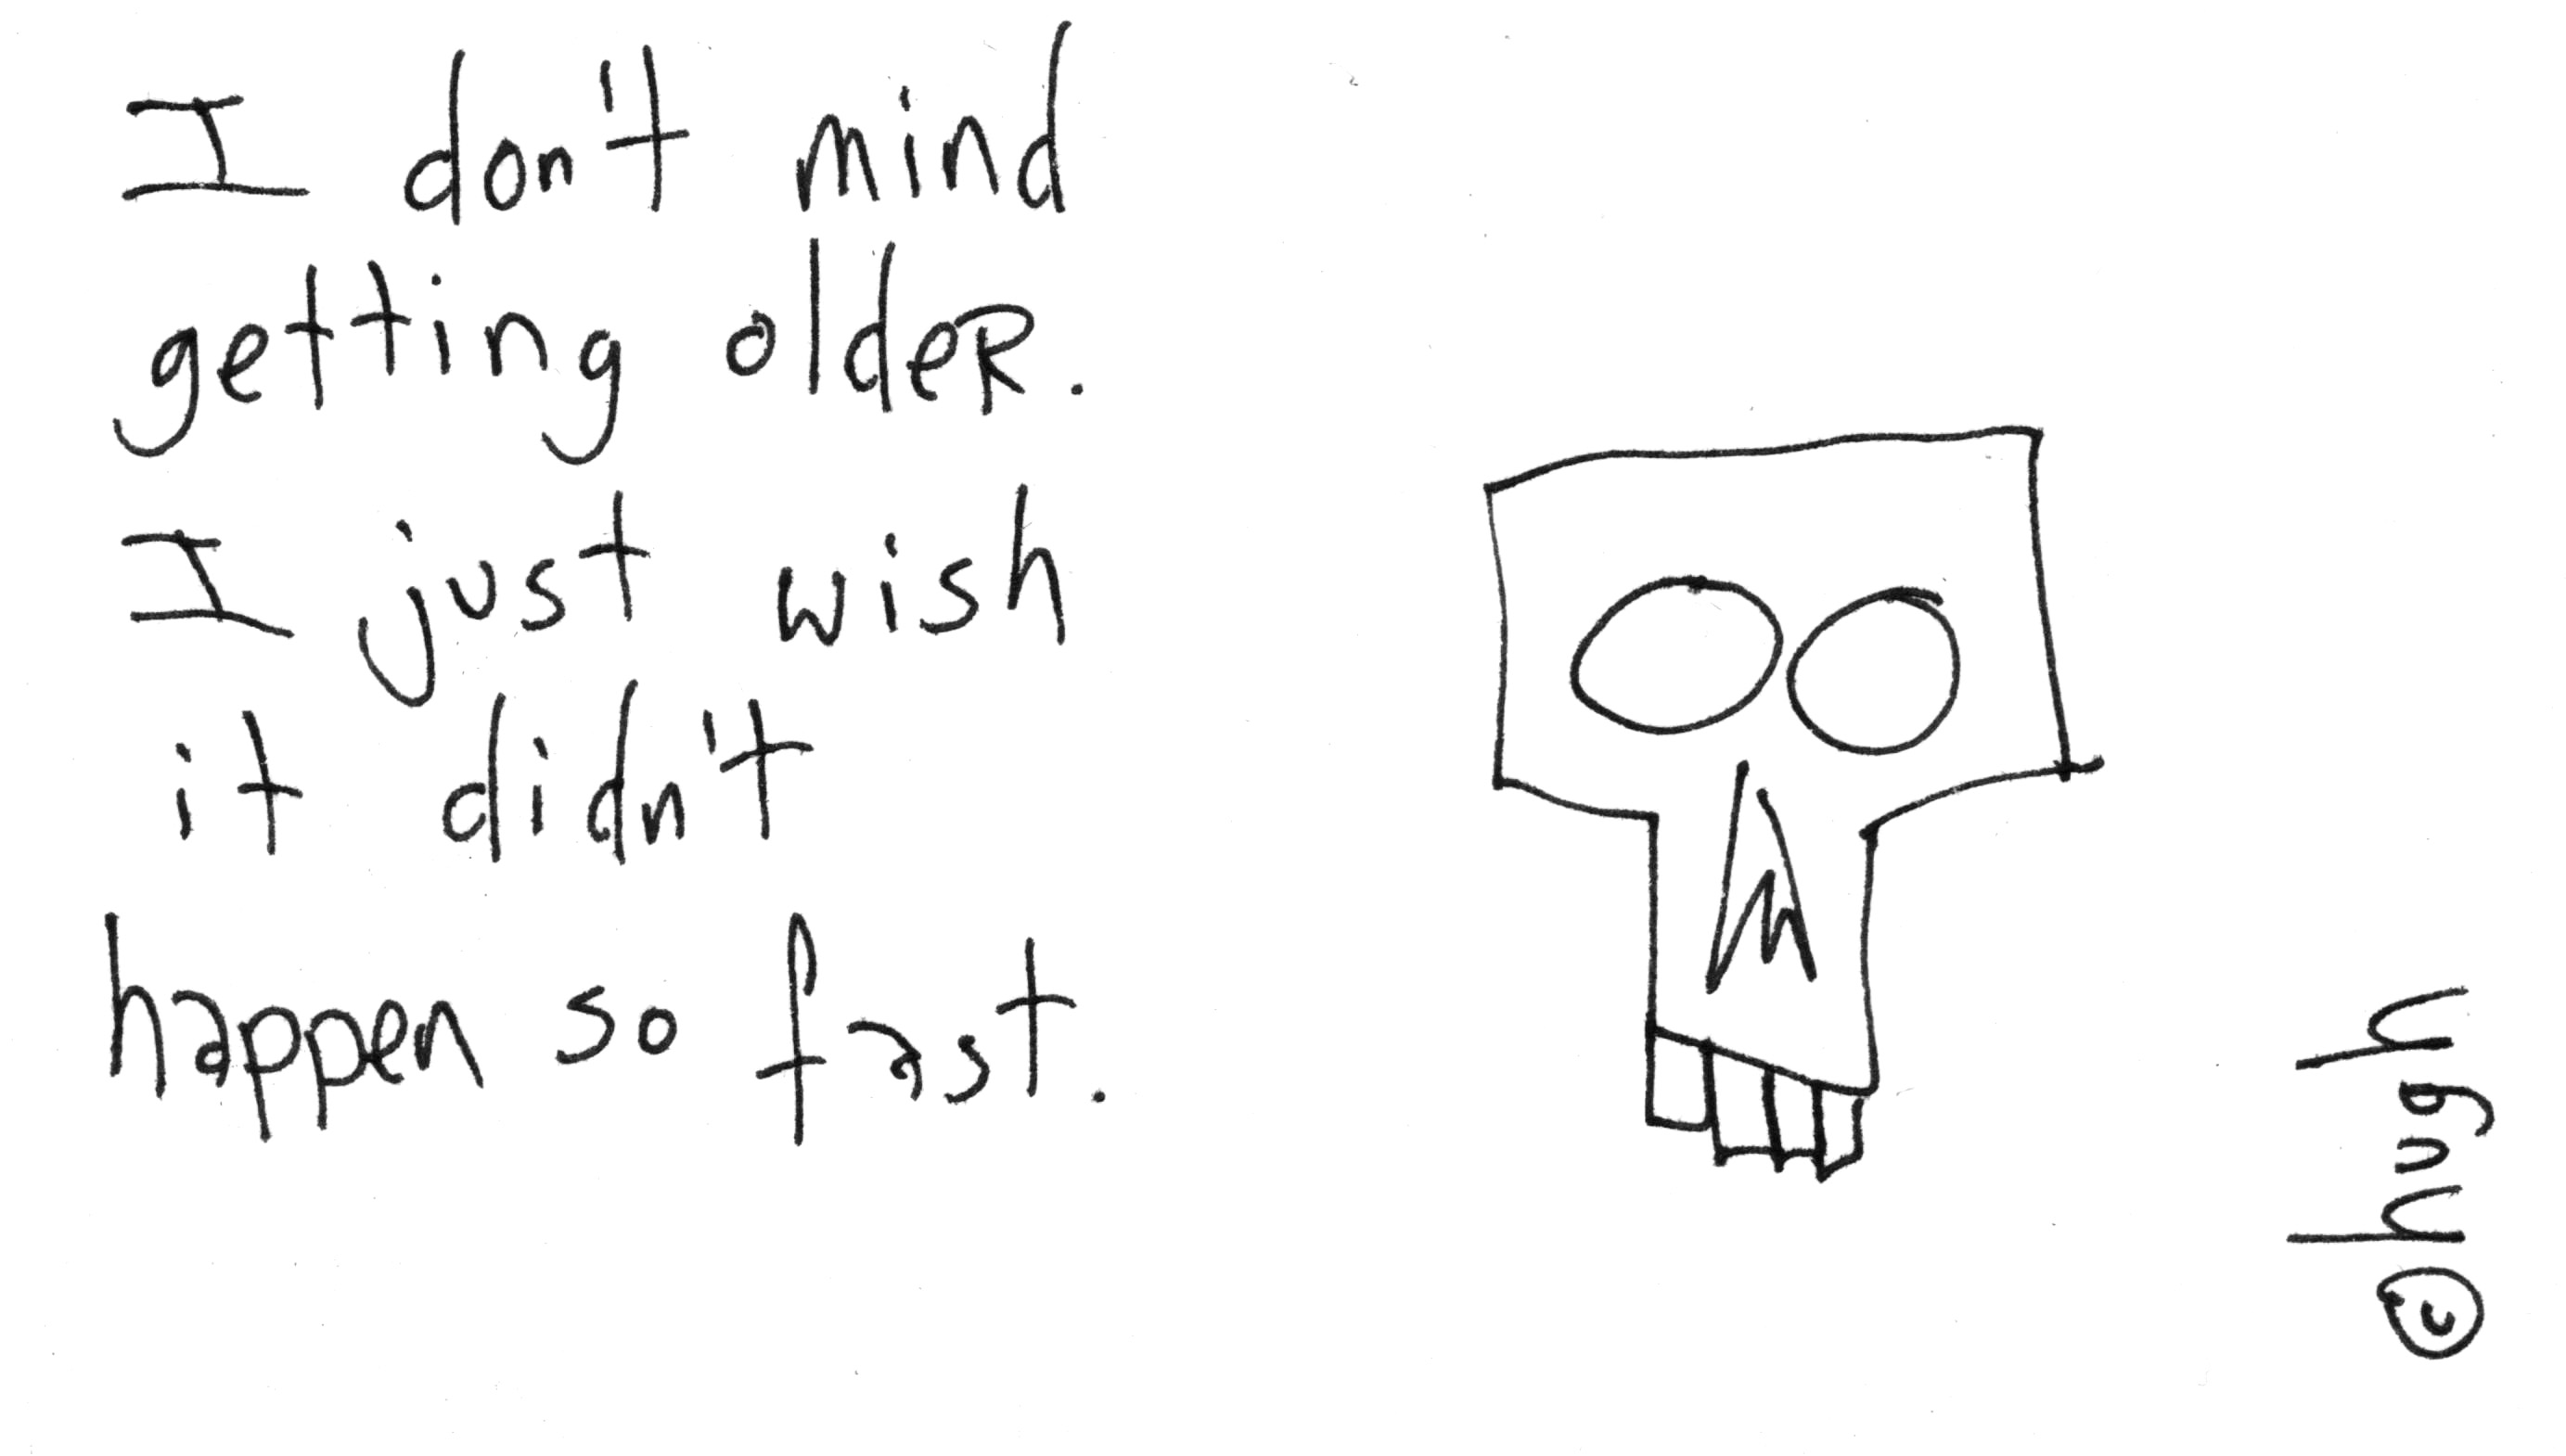 I don't mind
getting older.
I just wish
it didn't
happen so fast.
©hugh